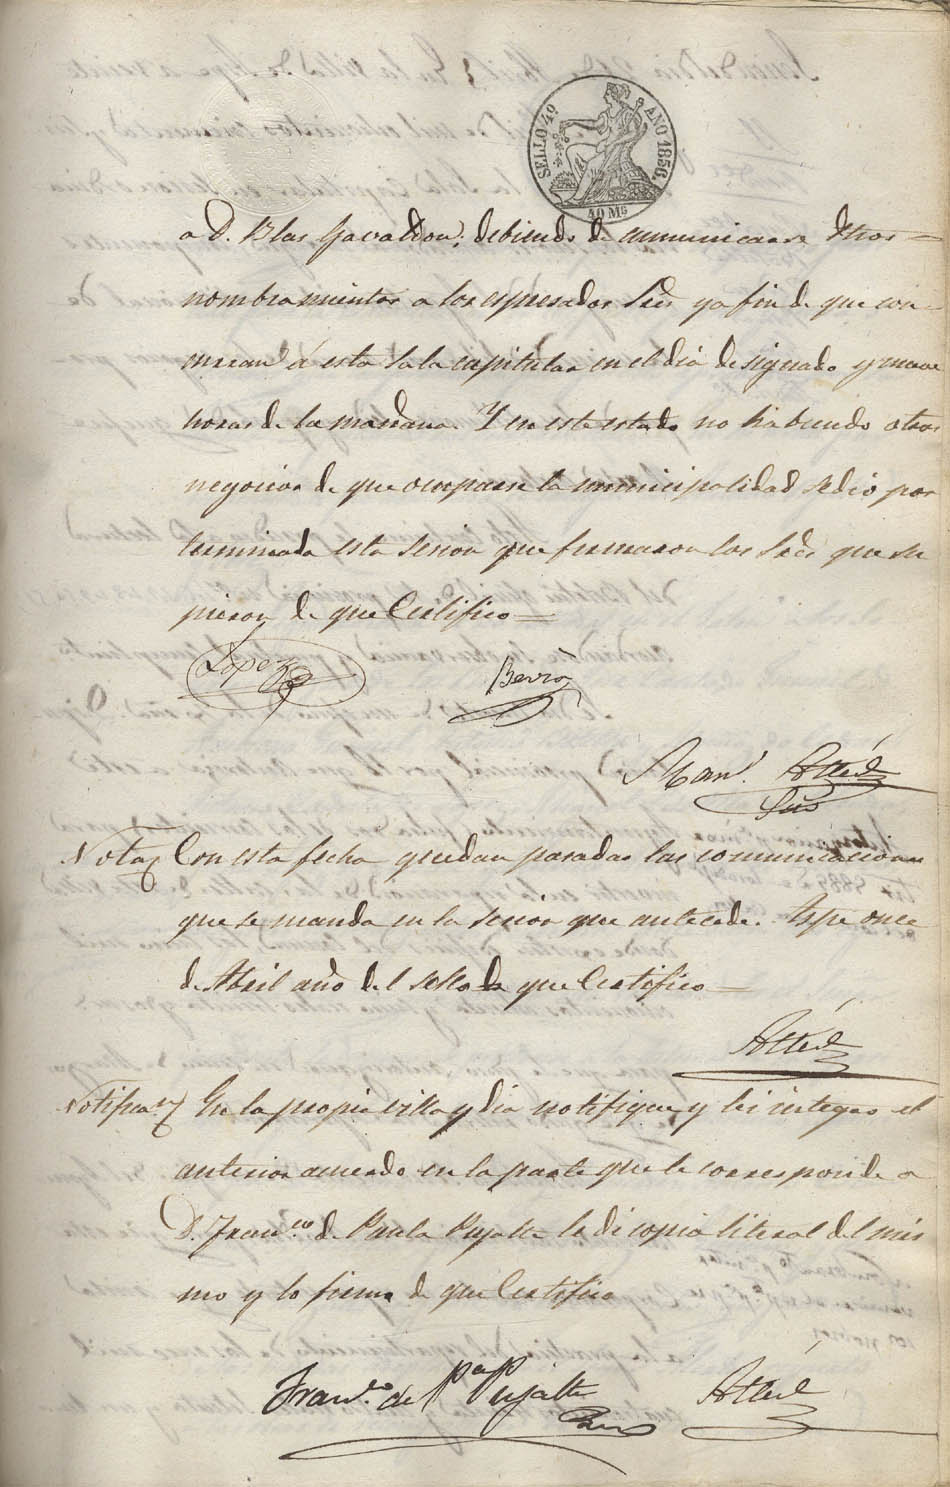 SELLO 4º AÑO 1856.
40 Ms
a D. Blas Gavaldon; debiendo de comunicarse dhos =
nombramientos a los espresados Sres y a fin de que con-
curran á esta Sala capitular en el dia designado y nueve
horas de la mañana. Y en este estado no habiendo otros
negocios de que ocuparse la municipalidad se dió por
terminada esta sesion que firmaron los Sres que su
pieron de que Certifico =
Lopez Berro
Man.l Atted
Srio
Nota Con esta fecha quedan pasadas las comunicaciones
que se manda en la sesion que antecede. Aspe once
de Abril año del sello de que Certifico =
Atted
Notificaon En la propia villa y dia notifique y lei integro el
anterior acuerdo en la parte que le corresponde a
D. Franco de Paula Pujalte le di copia literal del mis
mo y lo firma de que Certifico
Franco de Pa Pujalte Atted